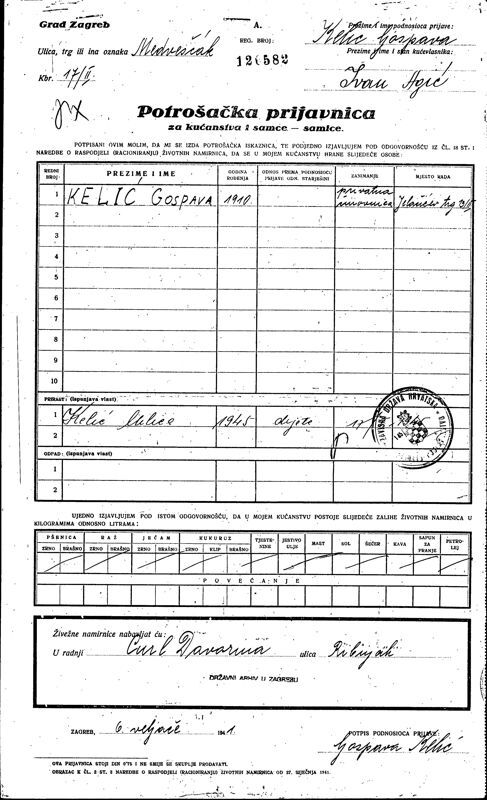 Grad Zagreb
A.
Prezime i ime podnosioca prijave:
Kelić Gospava
REG. BROJ:
126582
Ulica, trg ili ina oznaka Medveščak
Prezime i ime i stan kućevlasnika:
Kbr. 17/II
Ivan Agić
Potrošačka prijavnica
za kućanstva i samce — samice.
POTPISANI OVIM MOLIM, DA MI SE IZDA POTROŠAČKA ISKAZNICA, TE PODJEDNO IZJAVLJUJEM POD ODGOVORNOŠĆU IZ ČL. 18 ST. 1
NAREDBE O RASPODJELI (RACIONIRANJU) ŽIVOTNIH NAMIRNICA, DA SE U MOJEM KUĆANSTVU HRANE SLIJEDEĆE OSOBE:
REDNI BROJ
PREZIME I IME
GODINA ROĐENJA
ODNOS PREMA PODNOSIOCU PRIJAVE ODN. STARJEŠINI
ZANIMANJE
MJESTO RADA
1 KELIĆ GOSPAVA 1910. privatna
2
3
4
5
6
7
8
9
10
PRIRAST: (Ispunjava vlast)
1 Kelić Milica 1945 dijete
2
ODPAD: (Ispunjava vlast)
1
2
UJEDNO IZJAVLJUJEM POD ISTOM ODGOVORNOŠĆU, DA U MOJEM KUĆANSTVU POSTOJE SLIJEDEĆE ZALIHE ŽIVOTNIH NAMIRNICA U
KILOGRAMIMA ODNOSNO LITRAMA:
PŠENICA
RAŽ
JEČAM
KUKURUZ
TJESTENINE
JESTIVO ULJE
MAST
SOL
ŠEĆER
KAVA
SAPUN ZA PRANJE
PETROLEJ
ZRNO BRAŠNO ZRNO BRAŠNO ZRNO BRAŠNO ZRNO KLIP BRAŠNO
POVEĆANJE
Živežne namirnice nabavljat ću:
U radnji Curl Davorina ulica Ribnjak
DRŽAVNI ARHIV U ZAGREBU
ZAGREB, 6. veljače 1941
POTPIS PODNOSIOCA PRIJAVE:
Gospava Kelić
OVA PRIJAVNICA STOJI DIN 0'75 I NE SMIJE SE SKUPLJE PRODAVATI.
OBRAZAC K ČL. 2 ST. 2 NAREDBE O RASPODJELI (RACIONIRANJU) ŽIVOTNIH NAMIRNICA OD 27. SIJEČNJA 1941.